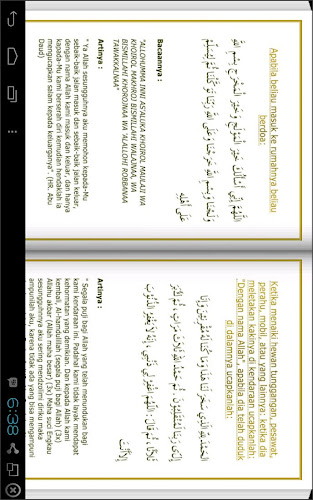 Apabila beliau masuk ke rumahnya beliau
berdoa:
اللَّهُمَّ إِنِّي أَسْأَلُكَ خَيْرَ الْمَوْلِجِ وَخَيْرَ الْمَخْرَجِ بِسْمِ اللهِ
وَلَجْنَا وَبِسْمِ اللهِ خَرَجْنَا وَعَلَى اللهِ رَبِّنَا تَوَكَّلْنَا ثُمَّ لِيُسَلِّمْ
عَلَى أَهْلِهِ
Bacaannya :
"ALLOHUMMA INNI AS'ALUKA KHOIROL MAULAJI WA
KHOIROL MAHROJ BISMILLAHI WALAJNAA, WA
BISMILLAHI KHOROJNAA WA 'ALALLOHI ROBBANAA
TAWAKKALNAA"
Artinya :
" Ya Allah sesungguhnya aku memohon kepada-Mu
sebaik-baik jalan masuk dan sebaik-baik jalan keluar,
dengan nama Allah kami masuk dan keluar, dan hanya
kepada-Mu kami berserah diri kemudian hendaklah ia
mengucapkan salam kepada keluarganya". (HR. Abu
Daud)
Ketika menaiki hewan tunggangan, pesawat,
perahu, mobil, atau yang lainnya: ketika dia
meletakan kakinya di kendaraan ucapkanlah:
"Dengan nama Allah", apabila dia telah duduk
di dalamnya ucapkanlah:
الْحَمْدُ لِلَّهِ الَّذِي سَخَّرَ لَنَا هَذَا وَمَا كُنَّا لَهُ مُقْرِنِينَ وَإِنَّا
إِلَى رَبِّنَا لَمُنْقَلِبُونَ . ثُمَّ حَمِدَ اللهَ ثَلَاثَ مَرَّاتٍ ، ثُمَّ كَبَّرَ
ثَلَاثًا ، ثُمَّ قَالَ : اللَّهُمَّ اغْفِرْ لِي إِنَّهُ لَا يَغْفِرُ الذُّنُوبَ
إِلَّا أَنْتَ
Artinya :
" Segala puji bagi Allah yang telah menundukan bagi
kami kendaraan ini. Padahal kami tidak layak mendapat
kehormatan yang demikian. Dan kepada Allah kami
kembali. Al-hamdulillah (segala puji bagi Allah) (3x)
Allahu akbar (Allah maha besar) (3x) Maha suci Engkau
sesungguhnya aku sering mendzolimi diriku maka
ampunilah aku, karena tidak ada yang bisa mengampuni
6:38